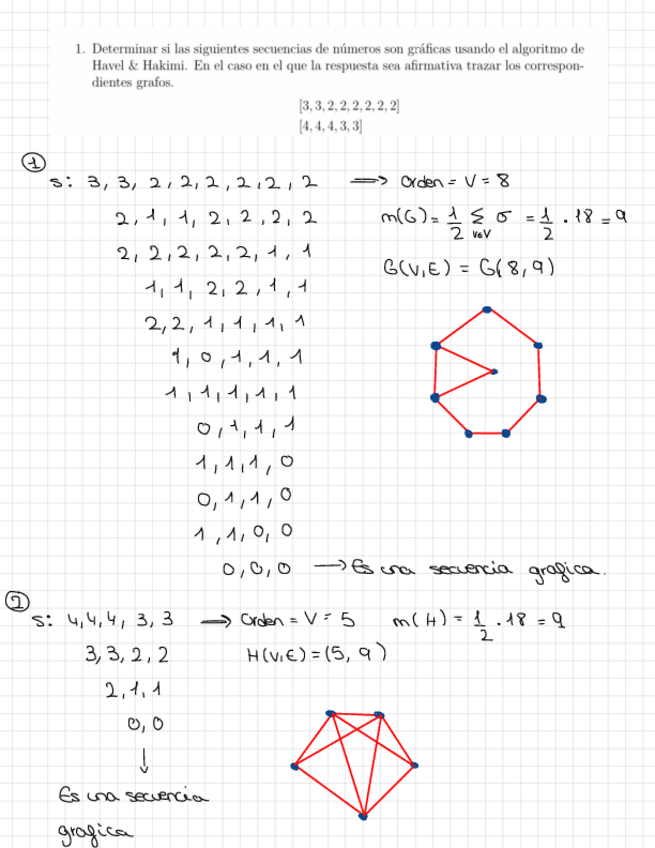 1. Determinar si las siguientes secuencias de números son gráficas usando el algoritmo de
Havel & Hakimi. En el caso en el que la respuesta sea afirmativa trazar los correspon-
dientes grafos.
[3, 3, 2, 2, 2, 2, 2, 2]
[4, 4, 4, 3, 3]
①
s: 3, 3, 2, 2, 2, 2, 2, 2 ⟹ Orden = V = 8
2, 1, 1, 2, 2, 2, 2
m(G) = 1/2 Σ v∈V σ = 1/2 . 18 = 9
2, 2, 2, 2, 2, 1, 1
G(V,E) = G(8,9)
1, 1, 2, 2, 1, 1
2, 2, 1, 1, 1, 1
1, 0, 1, 1, 1
1, 1, 1, 1, 1
0, 1, 1, 1
1, 1, 1, 0
0, 1, 1, 0
1, 1, 0, 0
0, 0, 0 → Es una secuencia grafica.
②
s: 4, 4, 4, 3, 3 ⟹ Orden = V = 5 m(H) = 1/2 . 18 = 9
3, 3, 2, 2 H(V,E) = (5, 9)
2, 1, 1
0, 0
↓
Es una secuencia
grafica